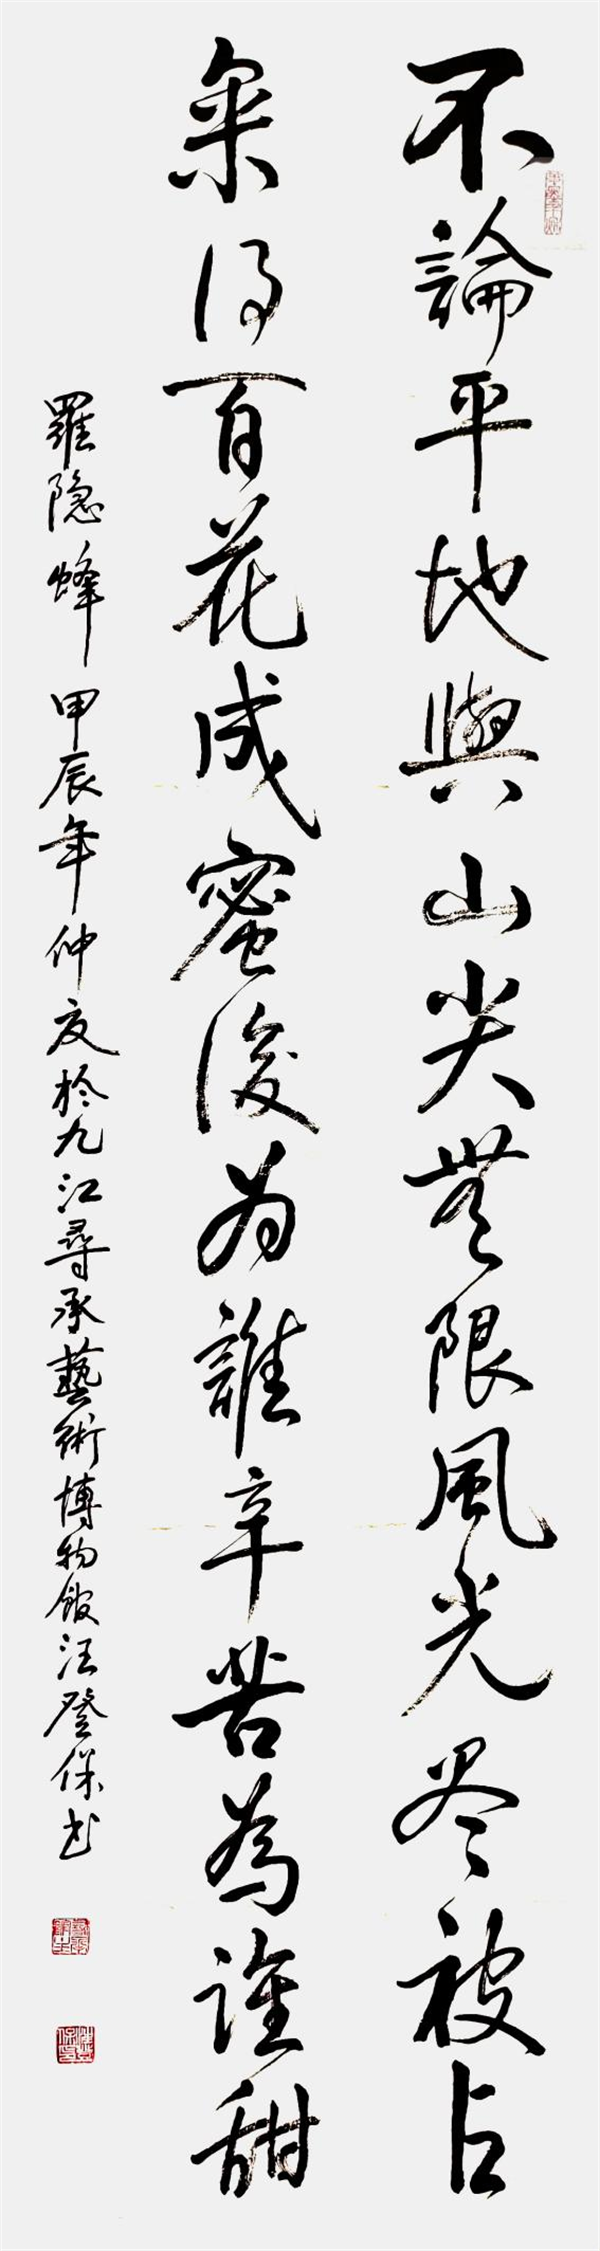 不論平地與山尖無限風光尽被占
采得百花成蜜後为誰辛苦為谁甜
羅隐蜂 甲辰年仲夏於九江尋承藝術博物館汪登保书